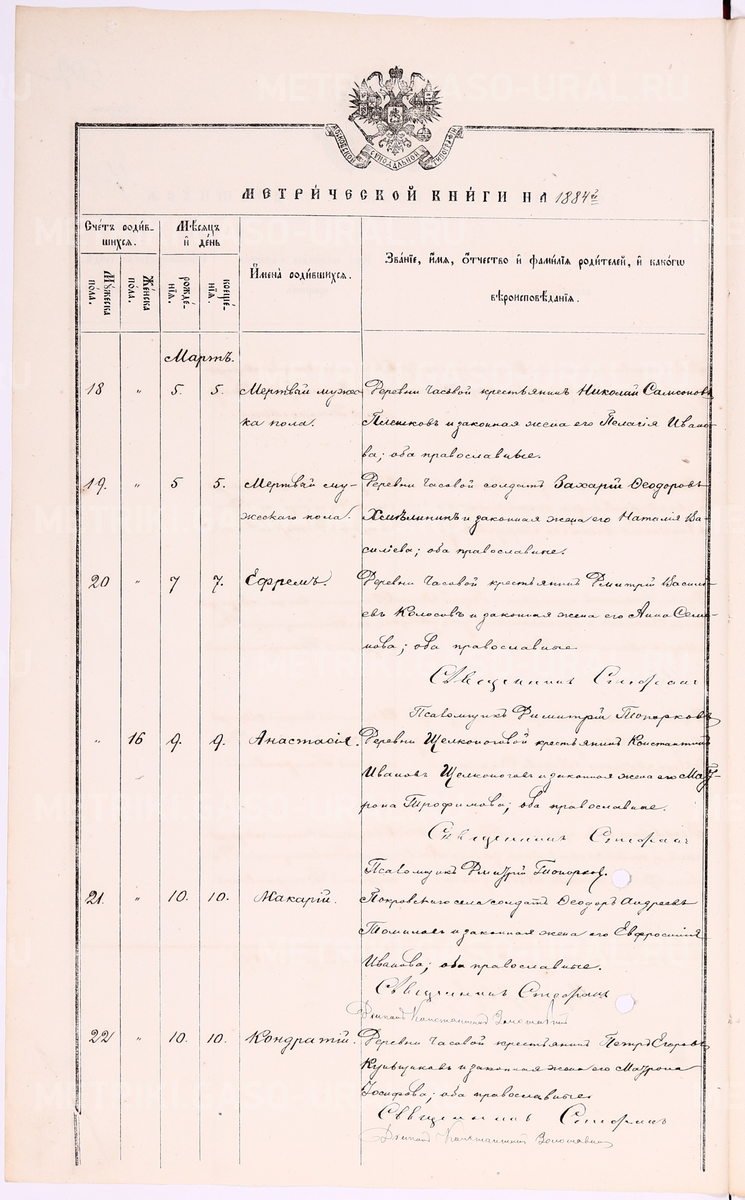 МОСКОВСКОЙ СѴНОДАЛЬНОЙ ТИПОГРАФІИ
МЕТРИ́ЧЕСКОЙ КНИ́ГИ НА 1884й
Сче́тъ роди́в-
шихся.
Мѣ́сяцъ
и҆ де́нь
И҆мена̀ роди́вшихся.
Зва́нїе, и҆́мя, ѻ҆́тчество и҆ фами́лїя роди́телей, и҆ како́гѡ
вѣроисповѣ́данїя.
Мꙋ́жеска
по́ла.
Же́нска
по́ла.
рожде́-
нїѧ.
креще́-
нїѧ.
Мартъ.
18 " 5. 5. Мертвый мужес- Деревни Часовой крестьянинъ Николай Самсоновъ
ка пола. Плешковъ и законная жена его Пелагія Ивано-
ва; оба православные.
19. " 5 5. Мертвый му- Деревни Часовой солдатъ Захарій Ѳеодоровъ
жескаго пола. Хмѣлининъ и законная жена его Наталія Ва-
силіева; оба православные.
20 " 7 7. Ефремъ. Деревни Часовой крестьянинъ Дмитрій Василь-
евъ Колосовъ и законная жена его Анна Семе-
нова; оба православные
Священникъ Стефанъ
Псаломщикъ Димитрій Топорковъ
" 16 9. 9. Анастасія. Деревни Щелконоговой крестьянинъ Константинъ
Ивановъ Щелконоговъ и законная жена его Мат-
рона Трофимова; оба православные.
Священникъ Стефанъ
Псаломщикъ Дмитрій Топорковъ.
21. " 10. 10. Макарій. Покровскаго села солдатъ Ѳеодоръ Андреевъ
Томиловъ и законная жена его Евфросинія
Иванова; оба православные.
Священникъ Стефанъ
Діаконъ Константинъ
22 " 10. 10. Кондратій. Деревни Часовой крестьянинъ Петръ Егоровъ
и законная жена его Матрона
Іосифова; оба православные.
Священникъ Стефанъ
Діаконъ Константинъ